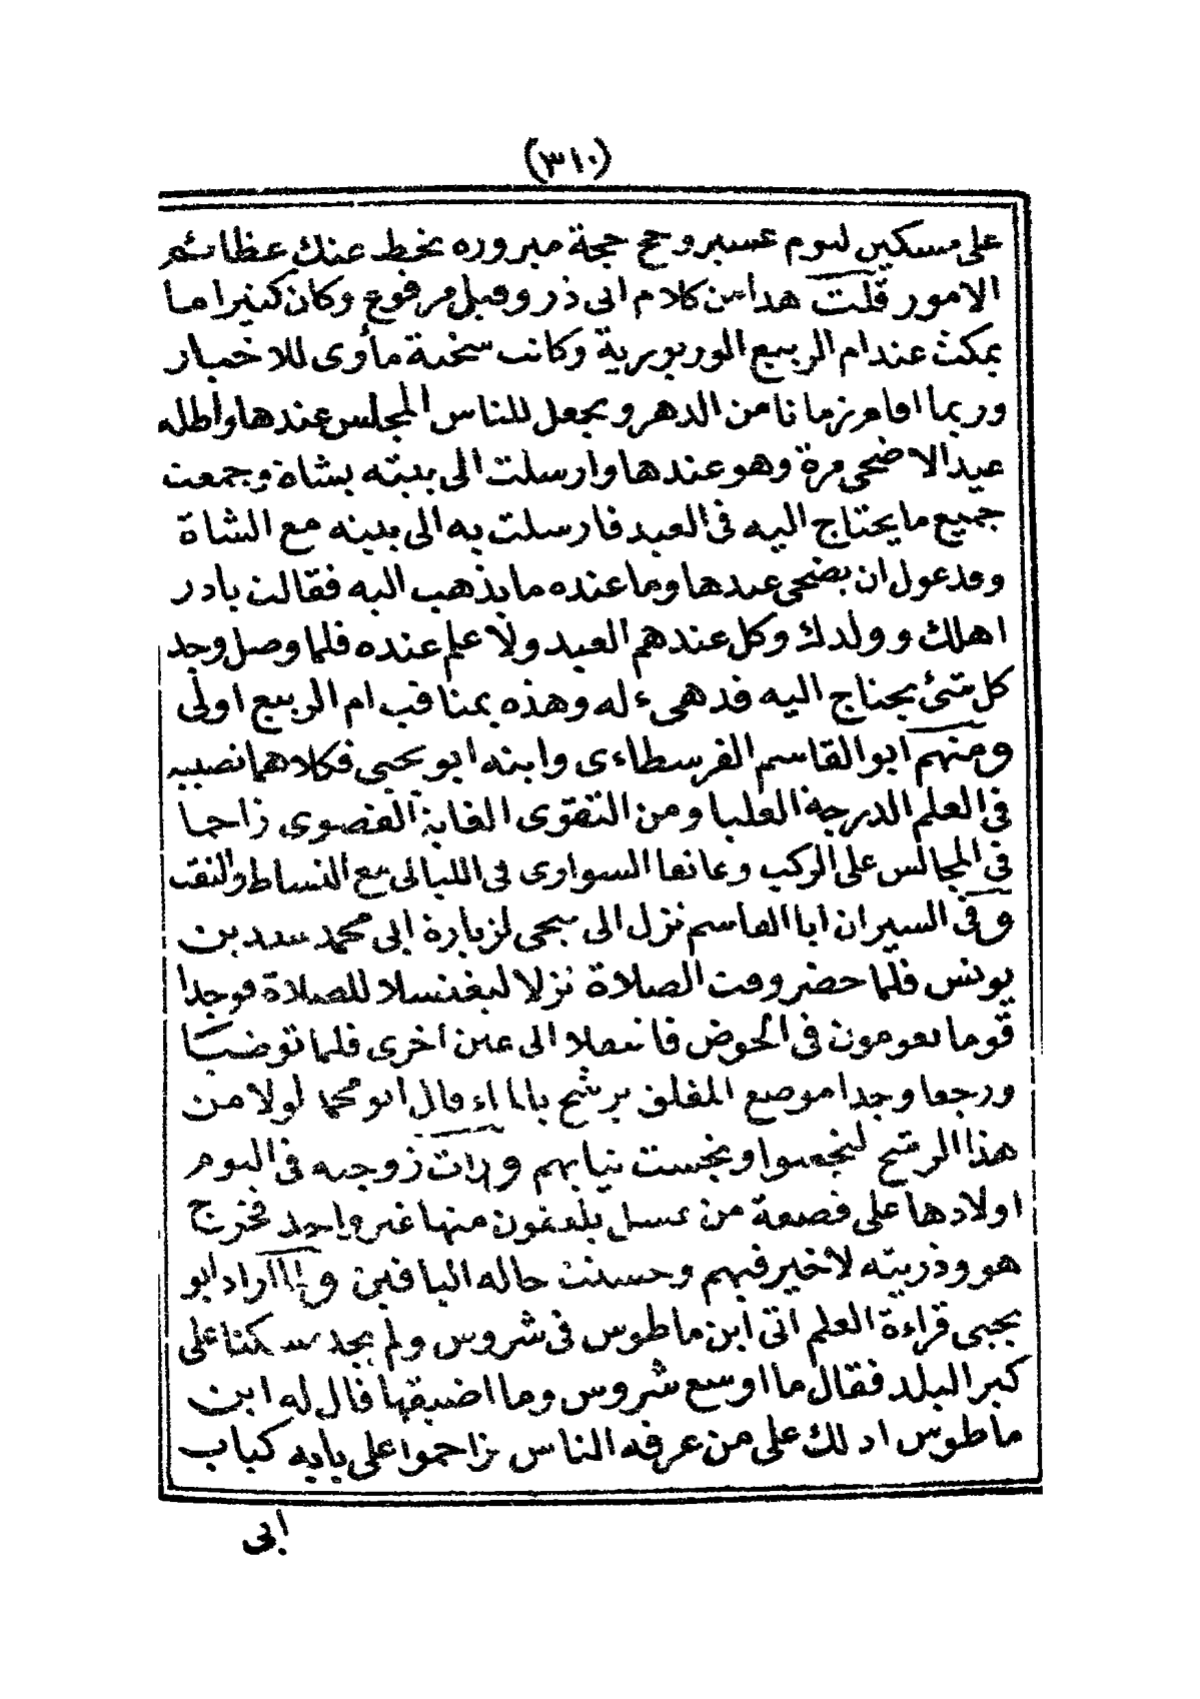 (٣١٠)
على مسكين ليوم عسير وحج حجة مبروره يحط عنك عظائم
الامور قلت هذا من كلام ابى ذر وقيل مرفوع وكان كثيرا ما
يمكث عند ام الربيع الوريورية وكانت سخية مأوى للاخيار
وربما اقام زمانا من الدهر ويجعل للناس المجلس عندها واطله
عيد الاضحى مرة وهو عندها وارسلت الى بيته بشاة وجمعت
جميع ما يحتاج اليه فى العيد فارسلت به الى بيته مع الشاة
وقد عول ان يضحى عندها وما عنده ما يذهب اليه فقالت بادر
اهلك وولدك وكل عندهم العيد ولا علم عنده فلما وصل وجد
كل شئ يحتاج اليه قد هىء له وهذه بمناقب ام الربيع اولى
ومنهم ابو القاسم الفرسطاءى وابنه ابو يحيى فكلاهما نصيبه
فى العلم الدرجة العليا ومن التقوى الغاية القصوى زاحما
فى المجالس على الركب وعانقا السوارى فى الليالى مع النشاط والنقب
وفى السير ان ابا القاسم نزل الى يبجى لزيارة ابى محمد سدد بن
يونس فلما حضر وقت الصلاة نزلا ليغتسلا للصلاة فوجدا
قوما يعومون فى الحوض فانتقلا الى عين اخرى فلما توضيا
ورجعا وجدا موضع المغلق يرشح بالماء قال ابو محمد لولا من
هذا الرشح لنجسوا ونجست ثيابهم ورات زوجته فى النوم
اولادها على قصعة من عسل يلعقون منها غير واحد فخرج
هو وذريته لا خير فيهم وحسنت حاله الباقين ولما اراد ابو
يحيى قراءة العلم اتى ابن ماطوس فى شروس ولم يجد مسكنا على
كبر البلد فقال ما اوسع شروس وما اضيقها قال له ابن
ماطوس ادلك على من عرفه الناس تزاحموا على بابه كباب
ابى